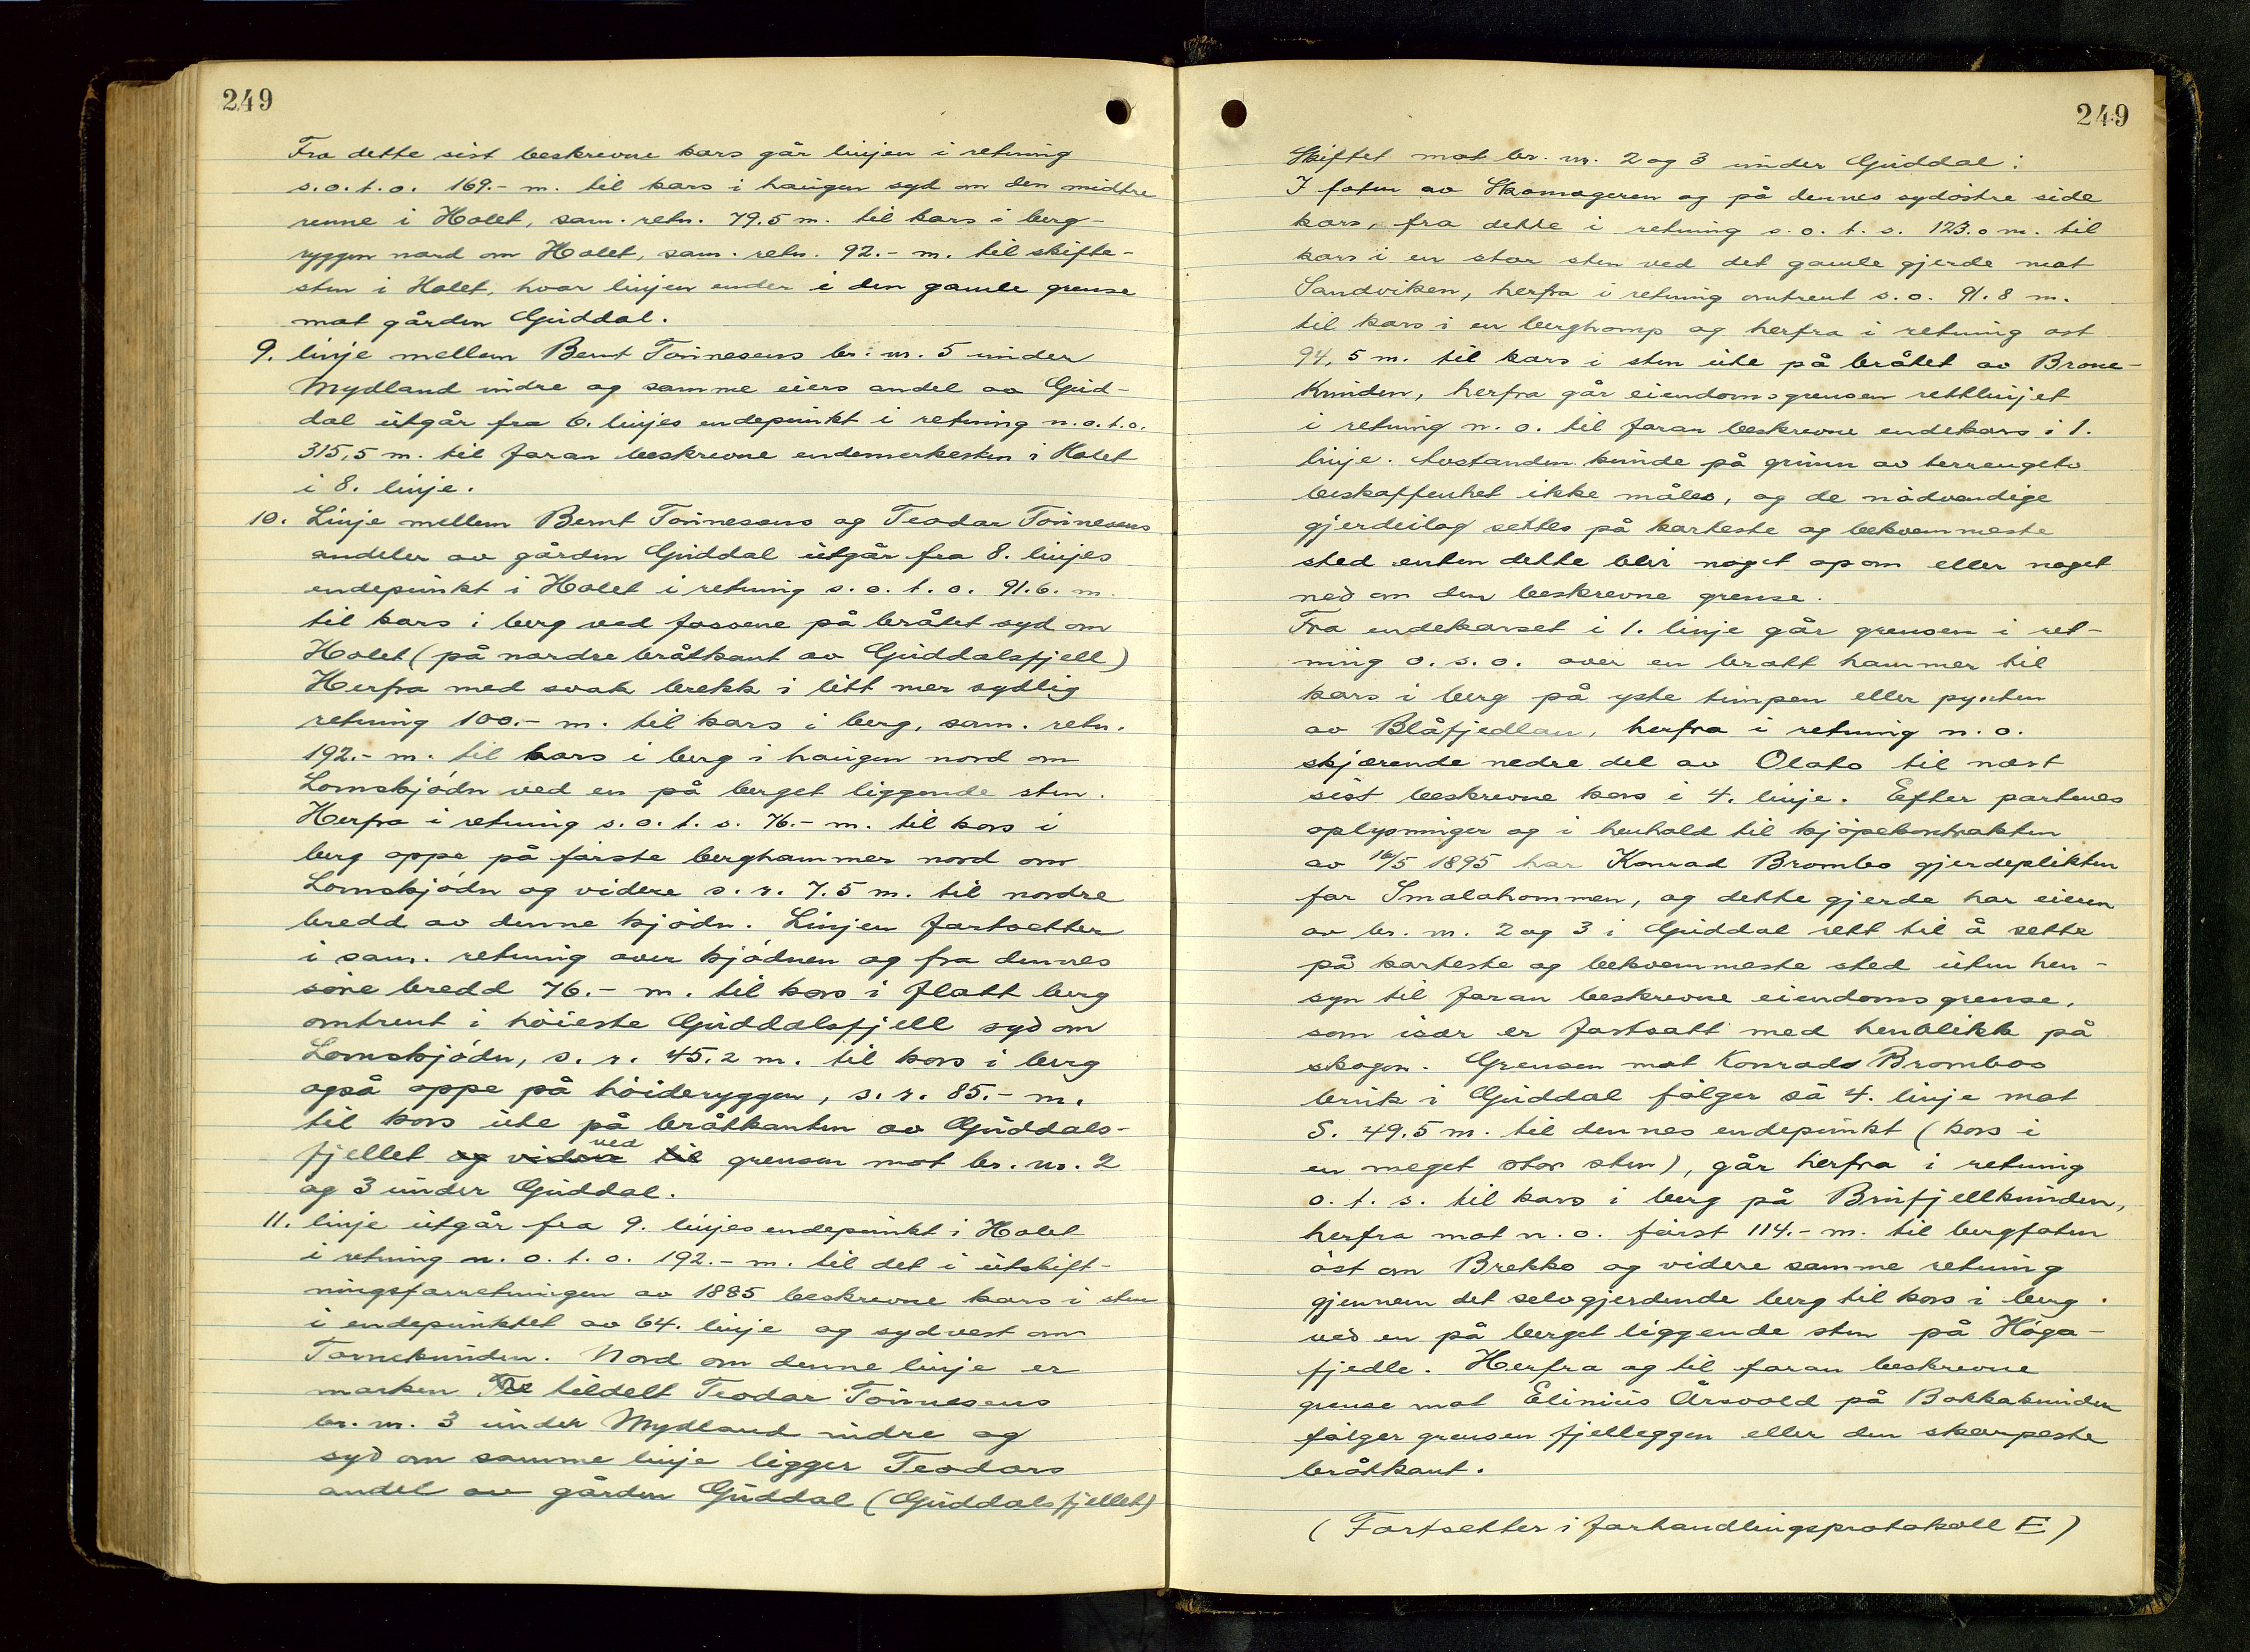 249
Fra dette sist beskrevne kors går linjen i retning
s.o.t.o. 169.- m. til kors i haugen syd om den midtre
renne i Holet, sam. retn. 79.5 m. til kors i berg-
ryggen nord om Holet, sam. retn. 92.- m. til skifte-
sten i Holet, hvor linjen ender i den gamle grense
mot gården Guddal.
9. linje mellem Bernt Tønnesens br. nr. 5 under
Mydland indre og samme eiers andel av Gud-
dal utgår fra 6. linjes endepunkt i retning n.o.t.o.
315,5 m. til foran beskrevne endemerkesten i Holet
i 8. linje.
10. Linje mellem Bernt Tønnesens og Teodor Tønnesens
andeler av gården Guddal utgår fra 8. linjes
endepunkt i Holet i retning s.o.t.o. 91.6. m.
til kors i berg ved fossene på bråtet syd om
Holet (på nordre bråtkant av Guddalsfjell)
Herfra med svak brekk i litt mer sydlig
retning 100.- m. til kors i berg, sam. retn.
192.- m. til kors i berg i haugen nord om
Lomskjödn ved en på berget liggende sten.
Herfra i retning s.o.t.s. 76.- m. til kors i
berg oppe på første berghammer nord om
Lomskjödn og videre s.r. 7.5 m. til nordre
bredd av denne kjödn. Linjen fortsetter
i sam. retning over kjödnen og fra dennes
söre bredd 76.- m. til kors i flatt berg
omtrent i höieste Guddalsfjell syd om
Lomskjödn, s.r. 45.2 m. til kors i berg
også oppe på höideryggen, s.r. 85.- m.
til kors ute på bråtkanten av Guddals-
fjellet og videre til ved grensen mot br. nr. 2
og 3 under Guddal.
11. linje utgår fra 9. linjes endepunkt i Holet
i retning n.o.t.o. 192.- m. til det i utskift-
ningsforretningen av 1885 beskrevne kors i sten
i endepunktet av 64. linje og sydvest om
Tornekunden. Nord om denne linje er
marken tildelt Teodor Tönnesens
br. nr. 3 under Mydland indre og
syd om samme linje ligger Teodors
andel av gården Guddal (Guddalsfjellet)
249
Skiftet mot br. nr. 2 og 3 under Guddal:
I foten av Skomageren og på dennes sydöstre side
kors, fra dette i retning s.o.t.s. 123.0 m. til
kors i en stor sten ved det gamle gjerde mot
Sandviken, herfra i retning omtrent s.o. 91.8 m.
til kors i en berghomp og herfra i retning ost
94,5 m. til kors i sten ute på bråtet av Brone-
Knuden, herfra går eiendomsgrensen rettlinjet
i retning n.o. til foran beskrevne endekors i 1.
linje. Avstanden kunde på grunn av terrengets
beskaffenhet ikke måles, og de nödvendige
gjerdeslag settes på korteste og bekvemmeste
sted enten dette blir noget opom eller noget
ned om den beskrevne grense.
Fra endekorset i 1. linje går grensen i ret-
ning o.s.o. over en bratt hammer til
kors i berg på yste timpen eller pynten
av Blåfjedlan, herfra i retning n.o.
skjærende nedre del av Olato til næst
sist beskrevne kors i 4. linje. Efter partenes
oplysninger og i henhold til kjöpekontrakten
av 16/5 1895 har Konrad Brombo gjerdeplikten
for Smalahommen, og dette gjerde har eieren
av br. nr. 2 og 3 i Guddal rett til å sette
på korteste og bekvemmeste sted uten hen-
syn til foran beskrevne eiendomsgrense,
som især er fastsatt med henblikk på
skogen. Grensen mot Konrads Brombos
bruk i Guddal fölger så 4. linje mot
S. 49.5 m. til dennes endepunkt (kors i
en meget stor sten), går herfra i retning
o.t.s. til kors i berg på Brufjellknuden,
herfra mot n.o. först 114.- m. til bergfoten
öst om Brekko og videre samme retning
gjennem det selvgjerdende berg til kors i berg
ved en på berget liggende sten på Höga-
fjedle. Herfra og til foran beskrevne
grense mot Elinius Årsvold på Bokkaknuden
fölger grensen fjelleggen eller den skarpeste
bråtkant.
(Fortsetter i forhandlingsprotokoll E)